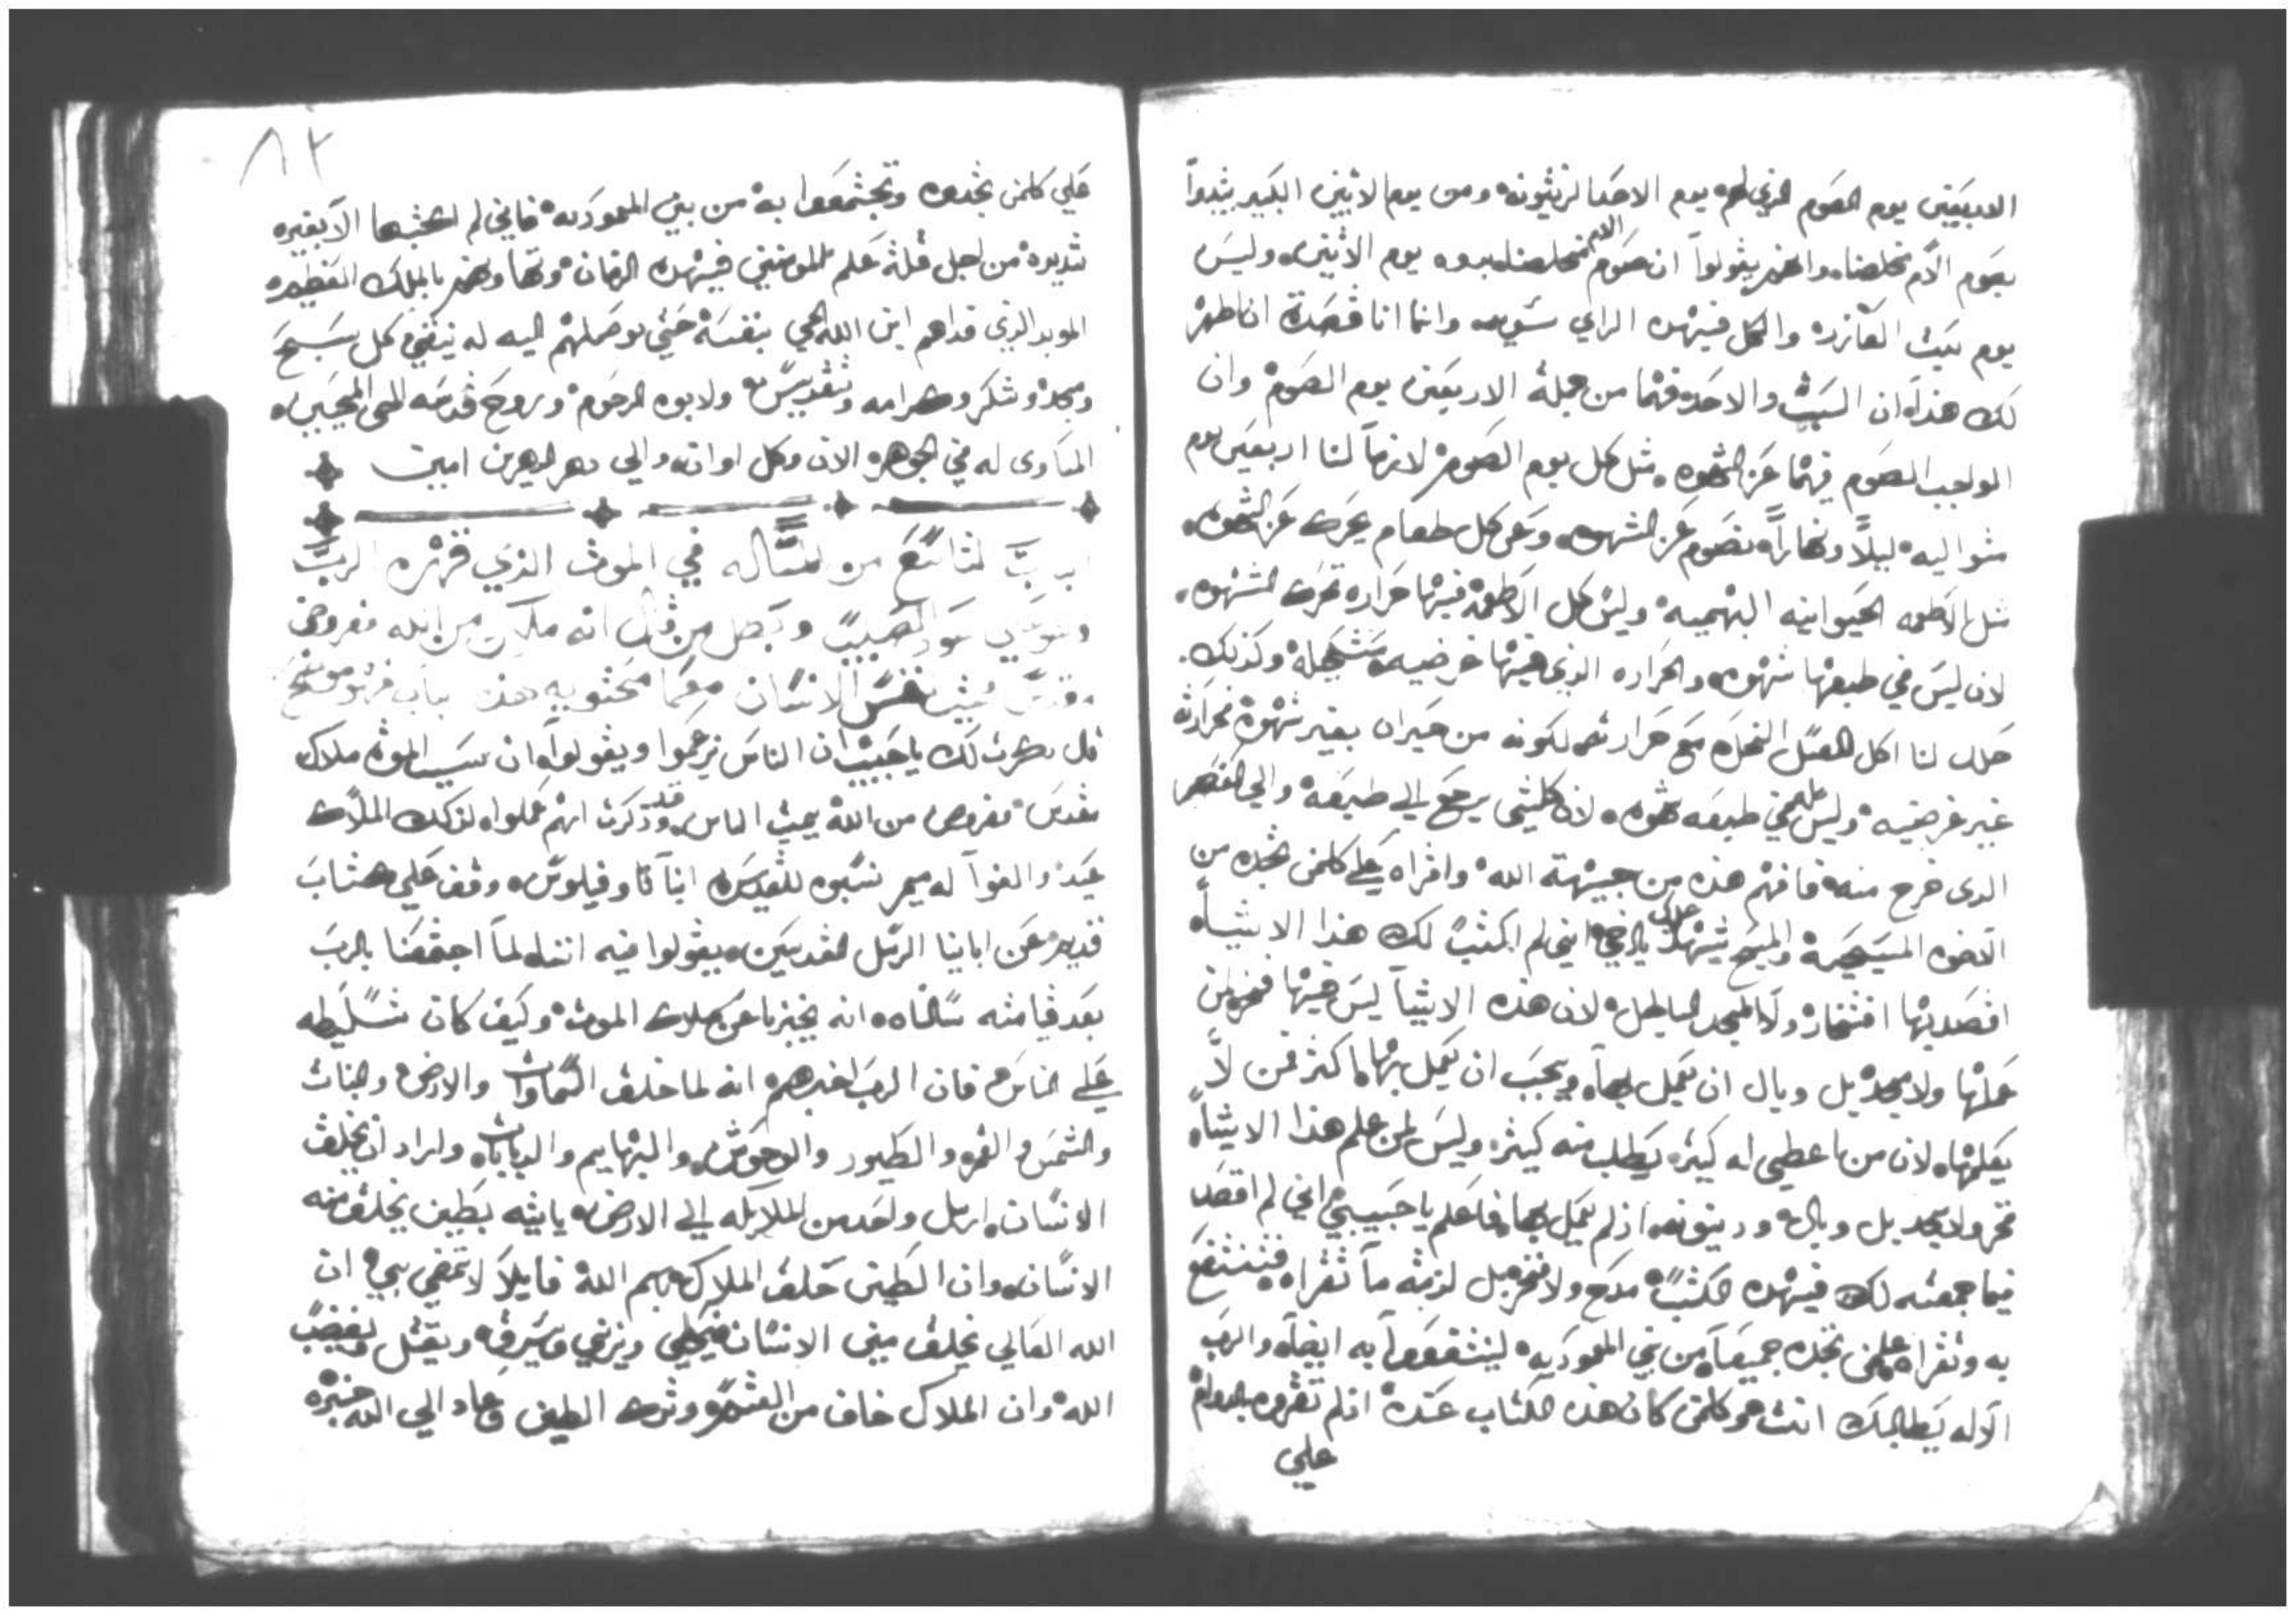 الاربعين يوم الصوم الذي لهم يوم الاحد الزيتونه ومن يوم الاثنين الكبير يبتدوا
بصوم الآم مخلصنا واخر يقولوا ان صوم الام مخلصنا يوم الاثنين وليس
يوم سبت العازر والكل فيهده الراي سويه وانما انا قصدة ان اظهر
لك هذا ان السبت والاحد فهما من جملة الاربعين يوم الصوم وان
الواجب الصوم فيهما عن الشهوه مثل كل يوم الصوم لازماً لنا اربعين يوم
متواليه ليلاً ونهاراً نصوم عن الشهوه وعن كل طعام يحرك عن الشهوه
مثل الاطعمه الحيوانيه البهميه وليس كل الاطعمة فيها حراره تحرك الشهوه
لان ليس في طبعها شهوه والحراره الذي فيها عرضيه مستحيلة وكذلك
حلال لنا اكل العسل النحل مع حرارته لكونه من حيوان بغير شهوة فحرارته
غير عرضيه وليس في طبعه شهوه لان كلشي يرجع الي طبعه والي العنصر
الدى خرج منه فافهم هذه من جهة الله واقراه علي كلمن تجده من
الاخوه المسيحية والمسيح يشهد علي ياخي اني لم اكتب لك هذا الاشياً
اقصد بها افتخار ولا لمجد الباطل لان هذه الاشيا ليس فيها فخر لمن
عملها ولا مجد بل وبال ان يعمل بها ويجب ان يعمل بها اكثر من لا
يعلمها لان من اعطي له كثير يطلب منه كثير وليس لمن علم هذا الاشياً
فخر ولا مجد بل وبال ودينونه اذ لم يعمل بها فاعلم يا حبيبي اني لم اقصد
فيما جمعته لك فيهده الكتب مدح ولا فخر بل لزمته ما تقراه فتنتفع
به وتقراه علي كلمن تجده جميعاً من بني المعموديه لينتفعوا به ايضاً والرب
الاله يطالبك انت هو كلمن كان هذه الكتاب عنده اذ لم تقروه بالدوام
علي
٨٢
علي كلمن تجدوه وتجتمعوا به من بين المعموديه فاني لم اكتبها الا بغيره
شديده من اجل قلة علم المومنين فيهده الزمان وتهاونهم بالملك العظيم
الموبد الذي فداهم ابن الله الحي بنفسه حتي يوصلهم اليه له ينبغي كل تسبيح
ومجد وشكر وكرامه وتقديس ولابوه الرحوم وروح قدسه المحى المجيب
المساوى له في الجوهر الان وكل اوان والي دهر الدهرين امين
الباب التاسع من المساله في الموت الذي قهره الرب
علي عود الصليب وبطل من قال انه ملاك من الله مفروض
نفس الانسان
قال ذكرت لك يا حبيب ان الناس زعموا ويقولوا ان سبب الموت ملاك
مقدس مفروض من الله يميت الناس وقد ذكرت انهم عملوا لذلك الملاك
عيد والفوا له ميمر نسبوه للقديس انبا تاوفيلوس وقف علي كتاب
قديم عن ابايتا الرسل القديسين يقولوا فيه اننا لما اجتمعنا بالرب
بعد قيامته سالناه انه يخبرنا عن ملاك الموت وكيف كان تسليطه
علي الناس فان الرب اخبرهم انه لما خلق السماوات والارض والجنات
والشمس والقمر والطيور والوحوش والبهايم والدبابات واراد ان يخلق
الانسان ارسل واحد من الملايكه الي الارض ياتيه بطين يخلق منه
الانسان وان الطين حلف الملاك باسم الله قايلاً لا تمضي بي ان
الله العالي يخلق مني الانسان فيخطي ويزني ويسرق ويقتل ويغضب
الله وان الملاك خاف من القسم وترك الطين وعاد الي الله خبره